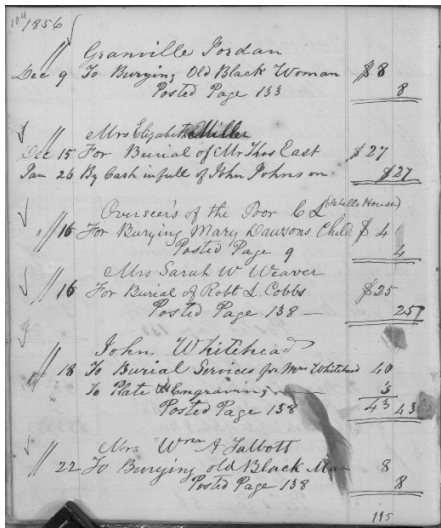 104
1856
Granville Jordan
Dec 9 To Burying Old Black Woman $8
Posted Page 133 8
Mrs Elizabeth Miller
Dec 15 For Burial of Mr Thos East $27
Jan 26 By Cash in full of John Johnson $27
Overseers of the Poor C L (at Wells House)
" 15 For Burying Mary Dawsons Child $4
Posted Page 9 4
Mrs Sarah W Weaver
" 16 For Burial of Robt L Cobbs $25
Posted Page 138 — 25
John Whitehead
" 18 To Burial Services for Mrs Whitehead 40
To Plate & Engraving 3
Posted Page 138 43 43
Mrs Wm A Talbott
" 22 To Burying old Black Man 8
Posted Page 138 8
115